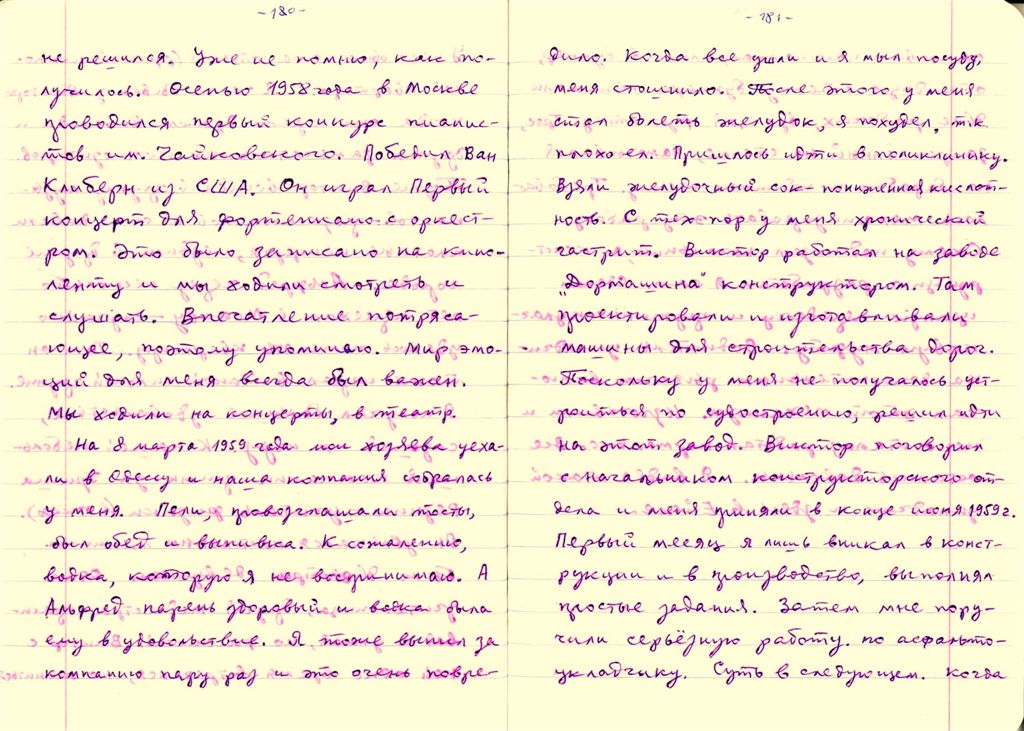 -180-
не решился. Уже не помню, как по-
лучилось. Осенью 1958 года в Москве
проводился первый конкурс пианис-
тов им. Чайковского. Победил Ван
Клиберн из США. Он играл Первый
концерт для фортепиано с оркест-
ром. Это было записано на кино-
ленту и мы ходили смотреть и
слушать. Впечатление потряса-
ющее, поэтому упоминаю. Мир эмо-
ций для меня всегда был важен.
Мы ходили на концерты, в театр.
На 8 марта 1959 года мои хозяева уеха-
ли в Одессу и наша компания собралась
у меня. Пели, провозглашали тосты,
был обед и выпивка. К сожалению,
водка, которую я не воспринимаю. А
Альфред парень здоровый и водка была
ему в удовольствие. Я тоже выпил за
компанию пару раз и это очень повре-
-181-
дило. Когда все ушли и я мыл посуду,
меня стошнило. После этого у меня
стал болеть желудок, я похудел, т.к
плохо ел. Пришлось идти в поликлинику.
Взяли желудочный сок - пониженная кислот-
ность. С тех пор у меня хронический
гастрит. Виктор работал на заводе
„Дормашина" конструктором. Там
проектировали и изготавливали
машины для строительства дорог.
Поскольку у меня не получалось уст-
роиться по судостроению, решил идти
на этот завод. Виктор поговорил
с начальником конструкторского от-
дела и меня приняли в конце июня 1959 г.
Первый месяц я лишь вникал в конст-
рукции и в производство, выполнял
простые задания. Затем мне пору-
чили серьёзную работу по асфальто-
укладчику. Суть в следующем. Когда